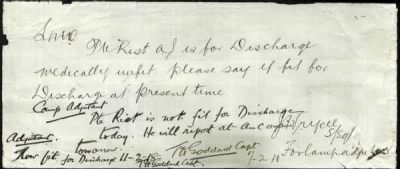 Pte Rist A J is for Discharge
medically unfit please say if fit for
Discharge at present time
Camp Adjutant
Pte Rist is not fit for Discharge
today. He will report at
tomorrow.
Adjutant.
Now fit for Discharge 11-2-
T H Goddard Capt
T H Goddard Capt.
For Camp Adjt